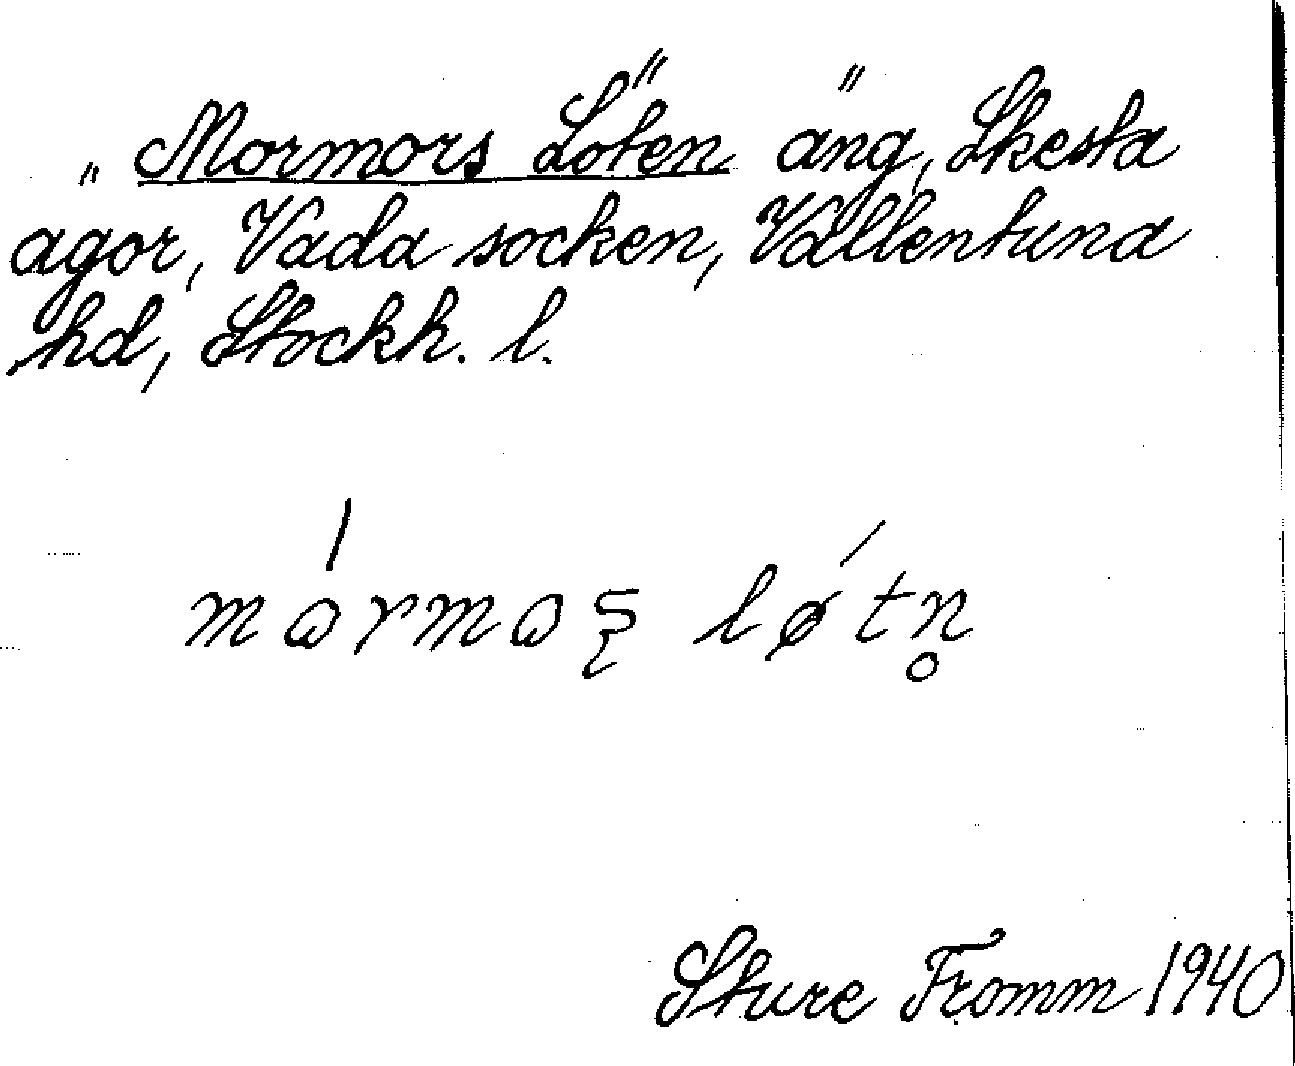 „Mormors Löten" äng, Skesta
ägor, Vada socken, Vallentuna
hd, Stockh. l.
mɷ́rmɷʂ lǿtn̥
Sture Fromm 1940